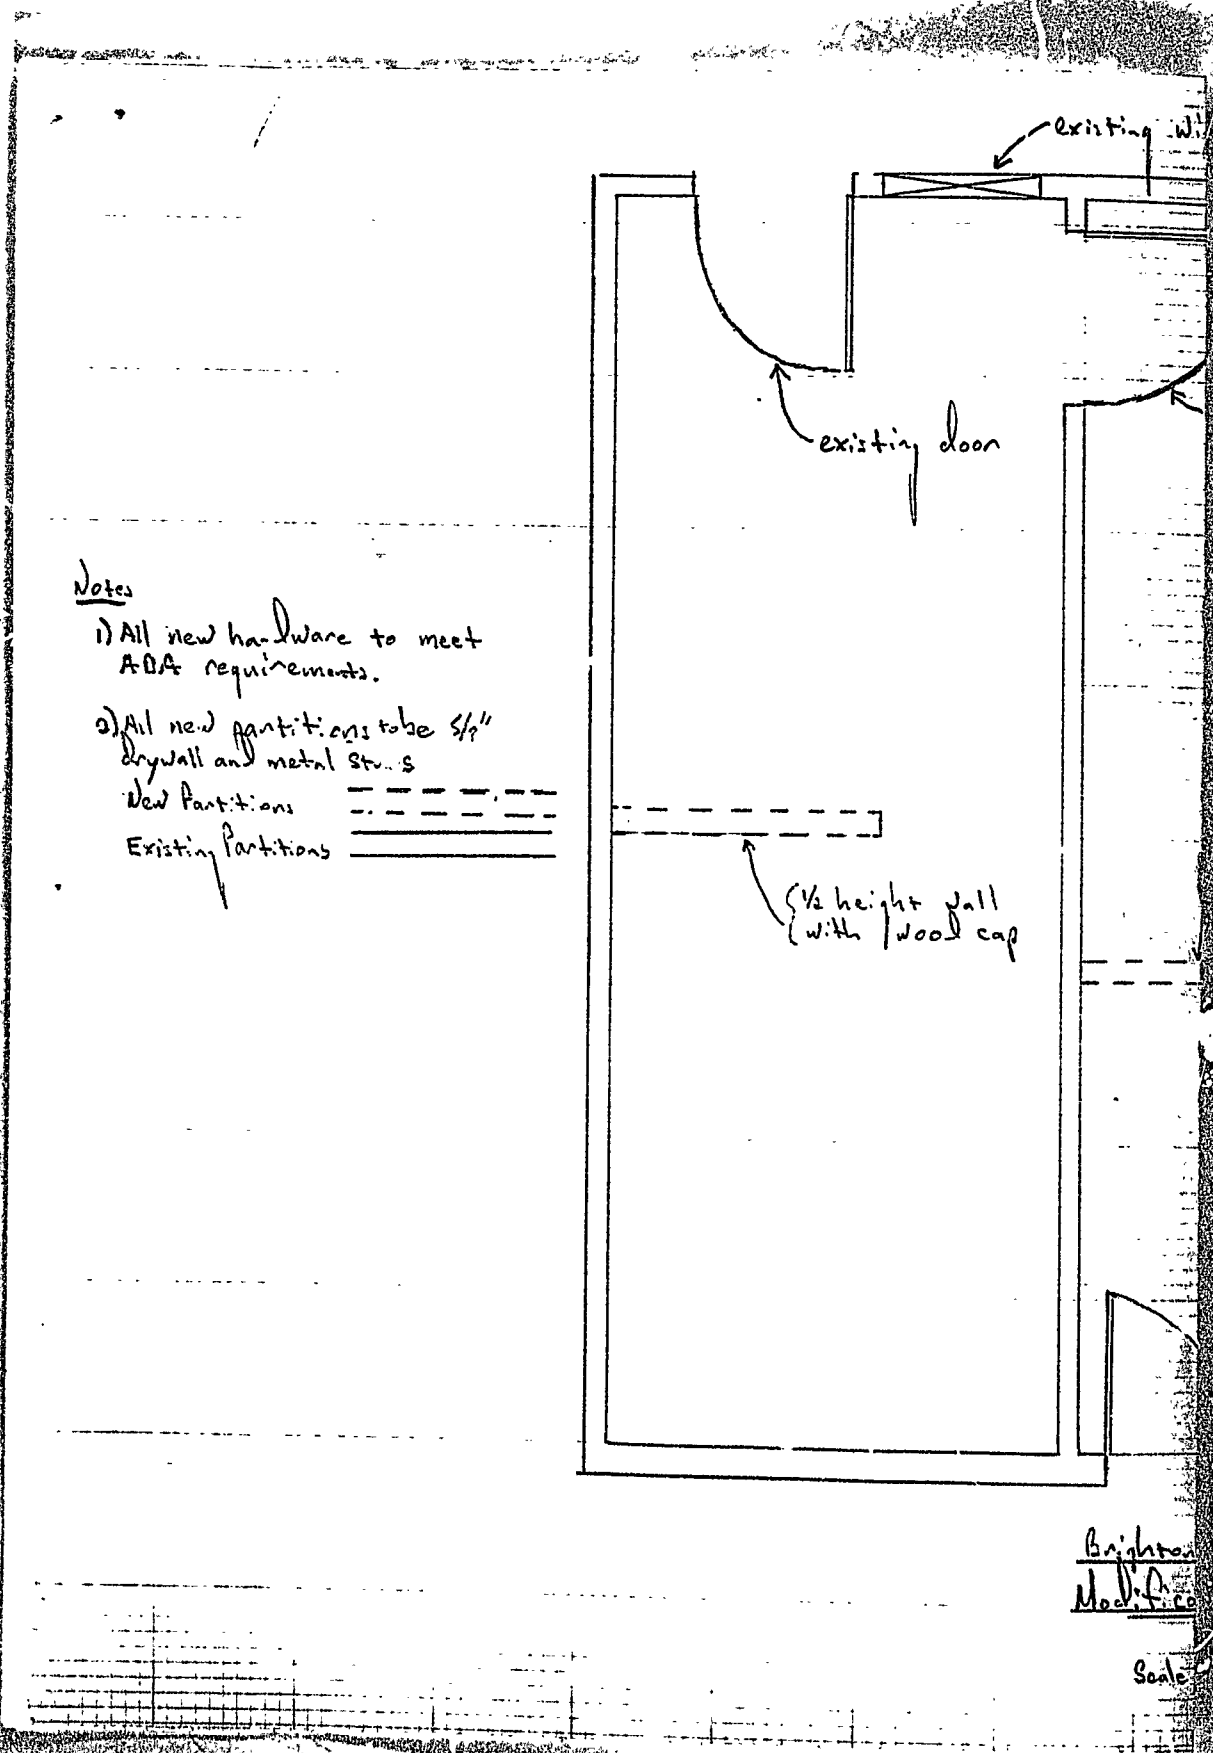 existing wi
existing door
Notes
1) All new hardware to meet
ADA requirements.
2) All new partitions to be 5/8"
drywall and metal studs
New Partitions
Existing Partitions
1/2 height wall
with wood cap
Brighton
Modifica
Scale